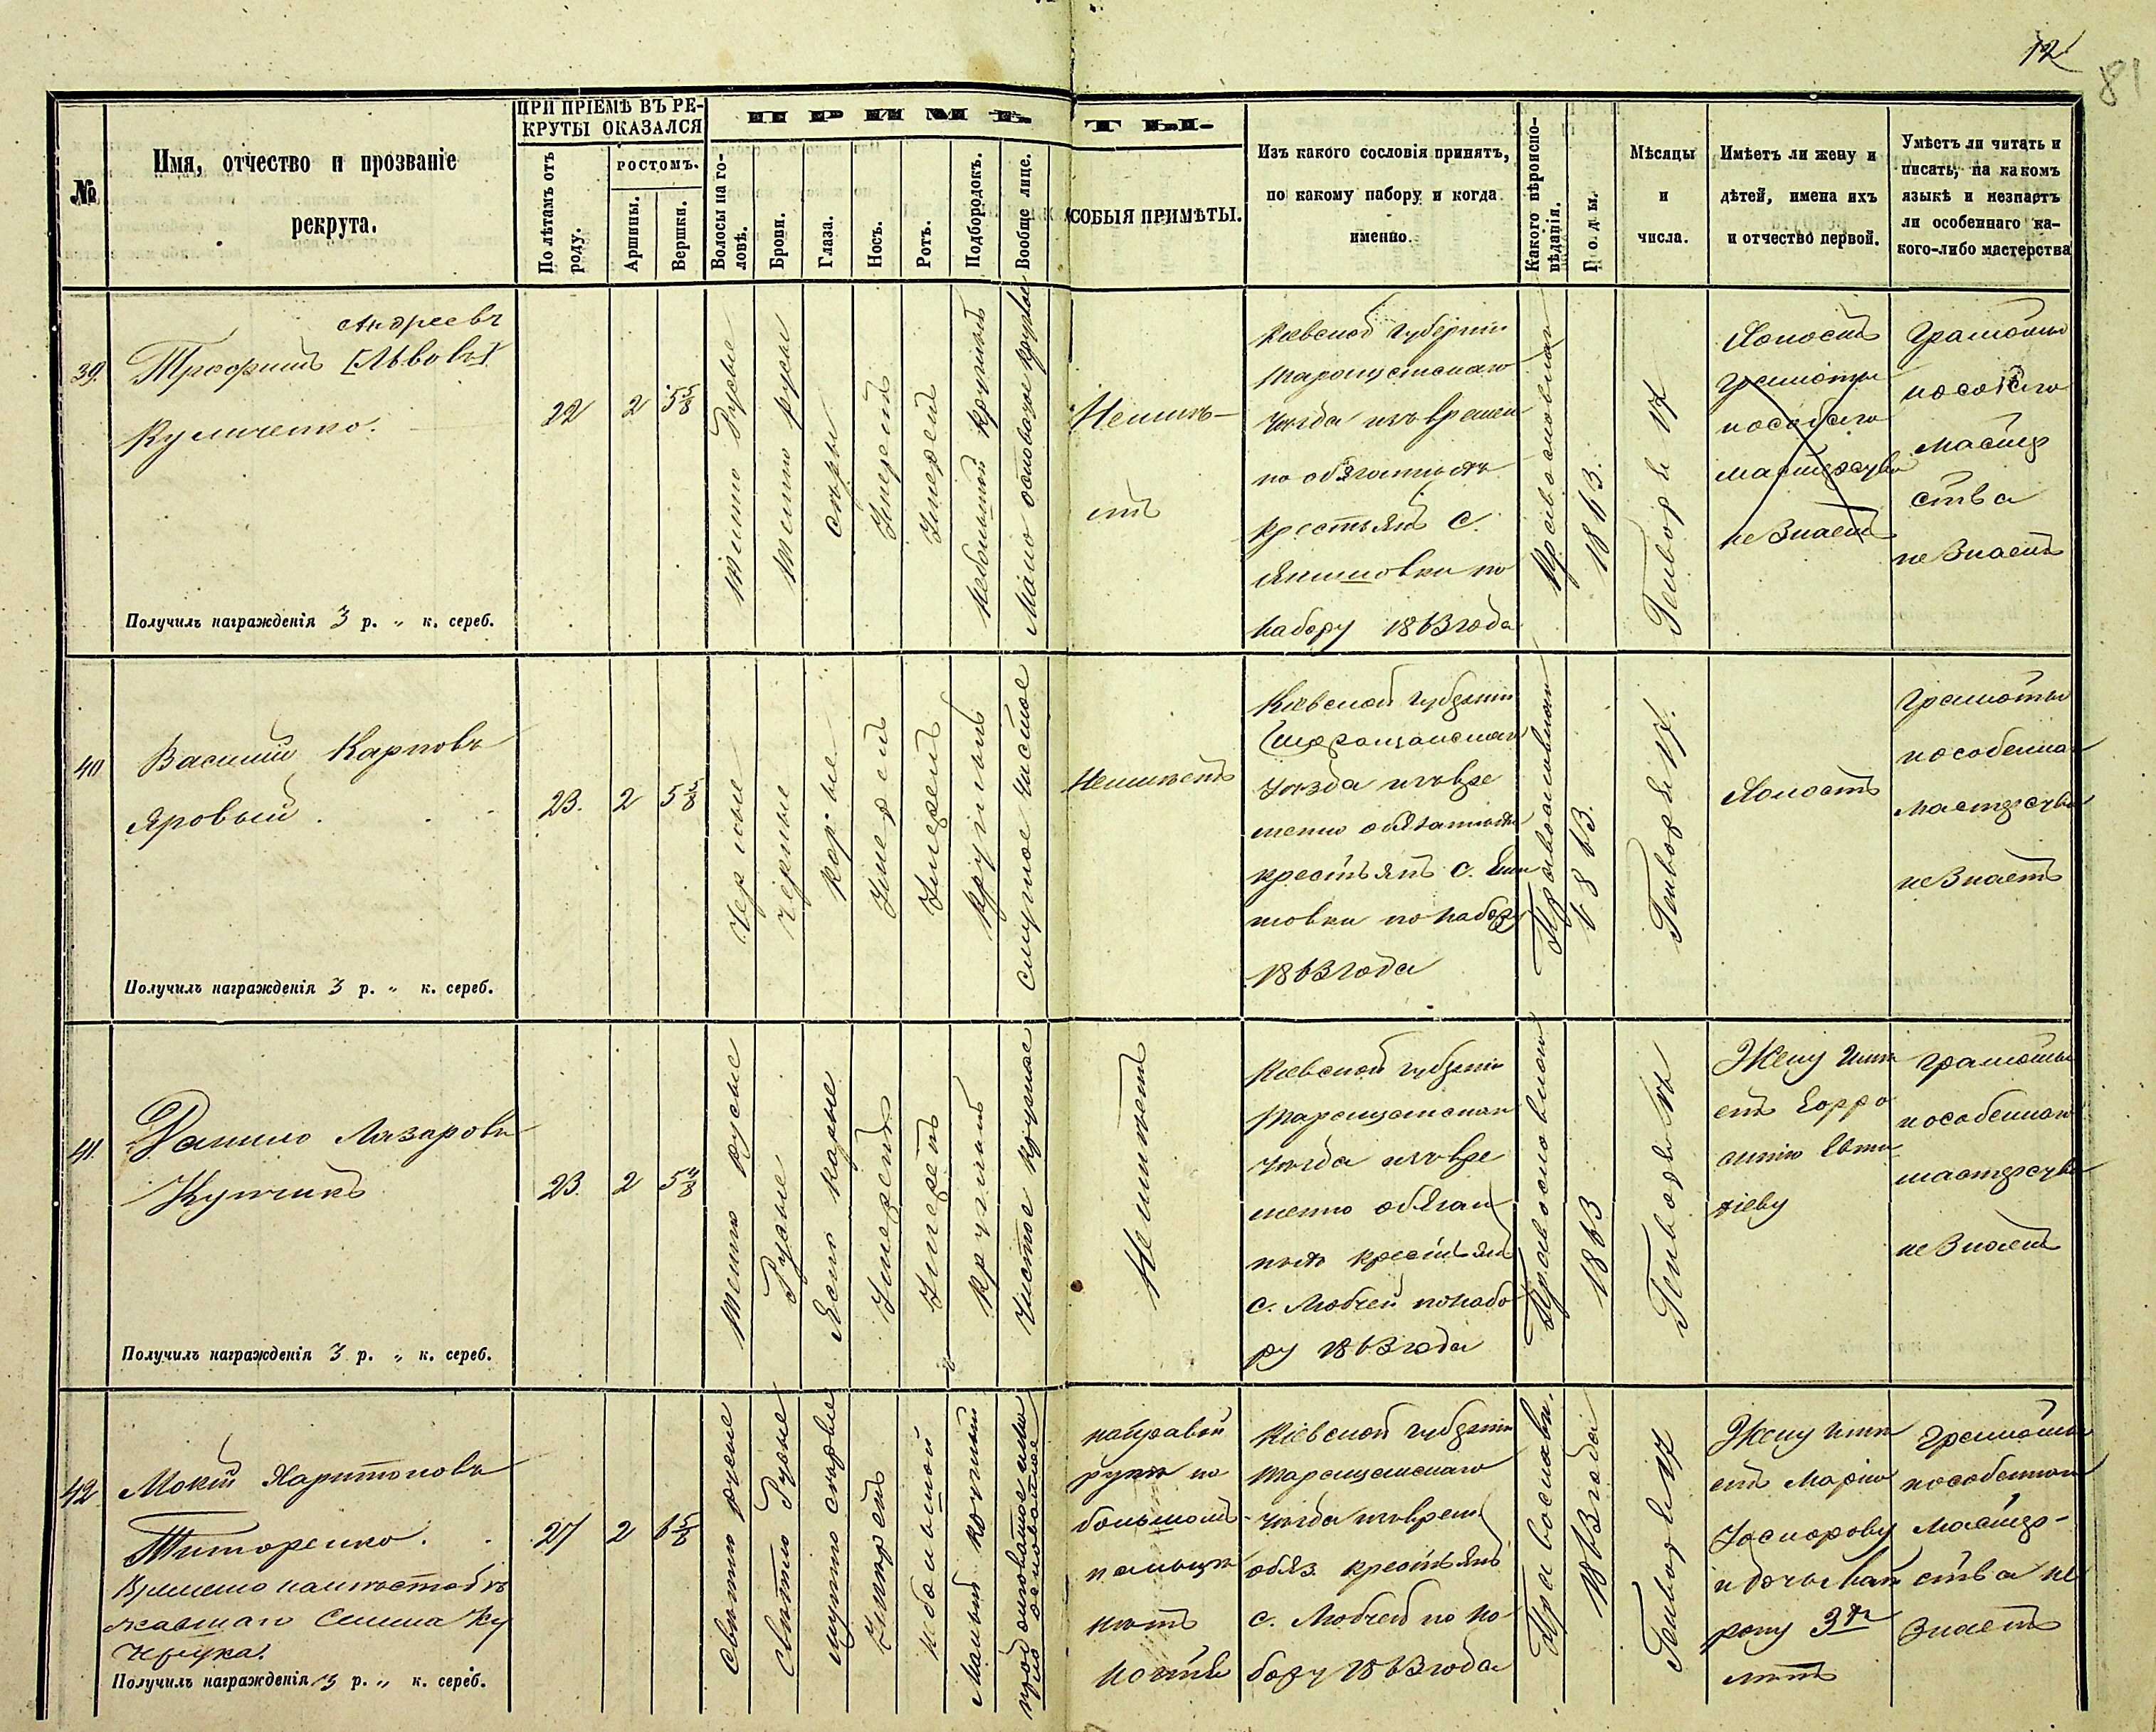 12
81
№
Имя, отчество и прозваніе
рекрута.
ПРИ ПРІЕМѢ ВЪ РЕ-
КРУТЫ ОКАЗАЛСЯ
По лѣтамъ отъ
роду.
РОСТОМЪ.
Аршины.
Вершки.
ПРИМѢ
ТЫ.
Волосы на го-
ловѣ.
Брови.
Глаза.
Носъ.
Ротъ.
Подбородокъ.
Вообще лице.
ОСОБЫЯ ПРИМѢТЫ.
Изъ какого сословія принятъ,
по какому набору и когда
именно.
Какого вѣроиспо-
вѣданія.
Годы.
Мѣсяцы
и
числа.
Имѣетъ ли жену и
дѣтей, имена ихъ
и отчество первой.
Умѣетъ ли читать и
писать, на какомъ
языкѣ и незнаетъ
ли особеннаго ка-
кого-либо мастерства
39.
Андреевъ
Трофимъ [Львовъ]
Куличенко.
Получилъ награжденія 3 р. „ к. сереб.
22
2
5 5/8
Темно Русые
Темно русы
Сѣры
Умерен
Умерен
Небольшой круглый
Мало осповатое круглы
Неимѣ-
етъ
Кіевской Губерніи
Таращанскаго
Уѣзда изъ времен
но обязанныхъ
крестьянъ С.
Янишовки по
набору 1863 года
Православнаг
1863.
Генворя 17
Холостъ
Грамоты
и особаго
мастерства
не Знаетъ
Грамоты
и особаго
мастер
ства
не Знаетъ
40
Василий Карповъ
Яровый.
Получилъ награжденія 3 р. „ к. сереб.
23.
2
5 5/8
Черные
Черные
Каріе
Умерен
Умерен
Круглый
Смуглое Чистое
Неимѣетъ
Кіевской Губерніи
Таращанскаго
Уѣзда изъ вре
менно обязанныхъ
крестьянъ С. Яни
шовки по набору
1863 года
Православной
1863.
Генворя 17.
Холостъ
Грамоты
и особенна
мастерства
не Знаетъ
41.
Данило Лазаровъ
Кучикъ
Получилъ награжденія 3 р. „ к. сереб.
23.
2
5 4/8
Темно русые
Русые
Ясно карые
Умерен
Умерен
Круглый
Чистое круглое
Неимѣетъ
Кіевской Губерніи
Таращанскаго
Уѣзда изъ вре
менно обязан
ныхъ крестьянъ
С. Любчей по набо
ру 1863 года
Православной
1863
Генворя 17
Жену имѣ
етъ Ефро
синію Евти
хіеву
Грамоты
и особеннаго
мастерства
не Знаетъ
42
Мокій Харитоновъ
Титоренко.
Получилъ награжденія 3 р. „ к. сереб.
27
2
6 5/8
Свѣтло русые
Свѣтло Русые
мутно сѣрые
Умерен
небольшой
Малый круглый
на правой
руки на
большомъ
пальцѣ
нѣтъ
Кіевской Губерніи
Таращанскаго
Уѣзда изъ врем.
обяз. крестьянъ
с. Любчей по на
бору 1863 года
Православн.
1863 года
Генворя 17
Жену имѣ
етъ Марію
3хъ
лѣтъ
Грамоты
и особеннаго
мастер-
ства не
Знаетъ